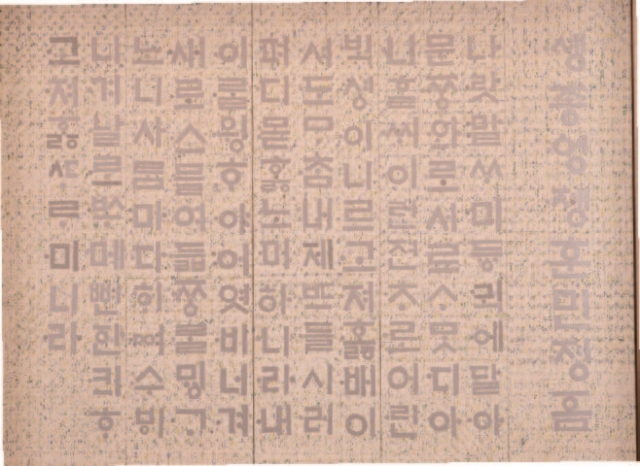 솅종엉졩훈민졍흠
나랏말ᄊᆞ미듕귁에달아
문ᄍᆞᆼ와로서르ᄉᆞᄆᆞᆺ디아
니ᄒᆞᆯᄊᆡ이런젼ᄎᆞ로어린
ᄇᆡᆨ셩이니르고져호ᇙ배이
셔도ᄆᆞᄎᆞᆷ내제ᄠᅳ들시러
펴디몯ᄒᆞᇙ노미하니라내
이ᄅᆞᆯ윙ᄒᆞ야어엿비너겨
새로스믈여듧ᄍᆞᆼᄅᆞᆯᄆᆡᇰᄀᆞ
노니사ᄅᆞᆷ마다ᄒᆡᅇᅧ수ᄫᅵ
니겨날로ᄡᅮ메뼌한킈ᄒᆞ
고져ᄒᆞᇙᄯᆞᄅᆞ미니라